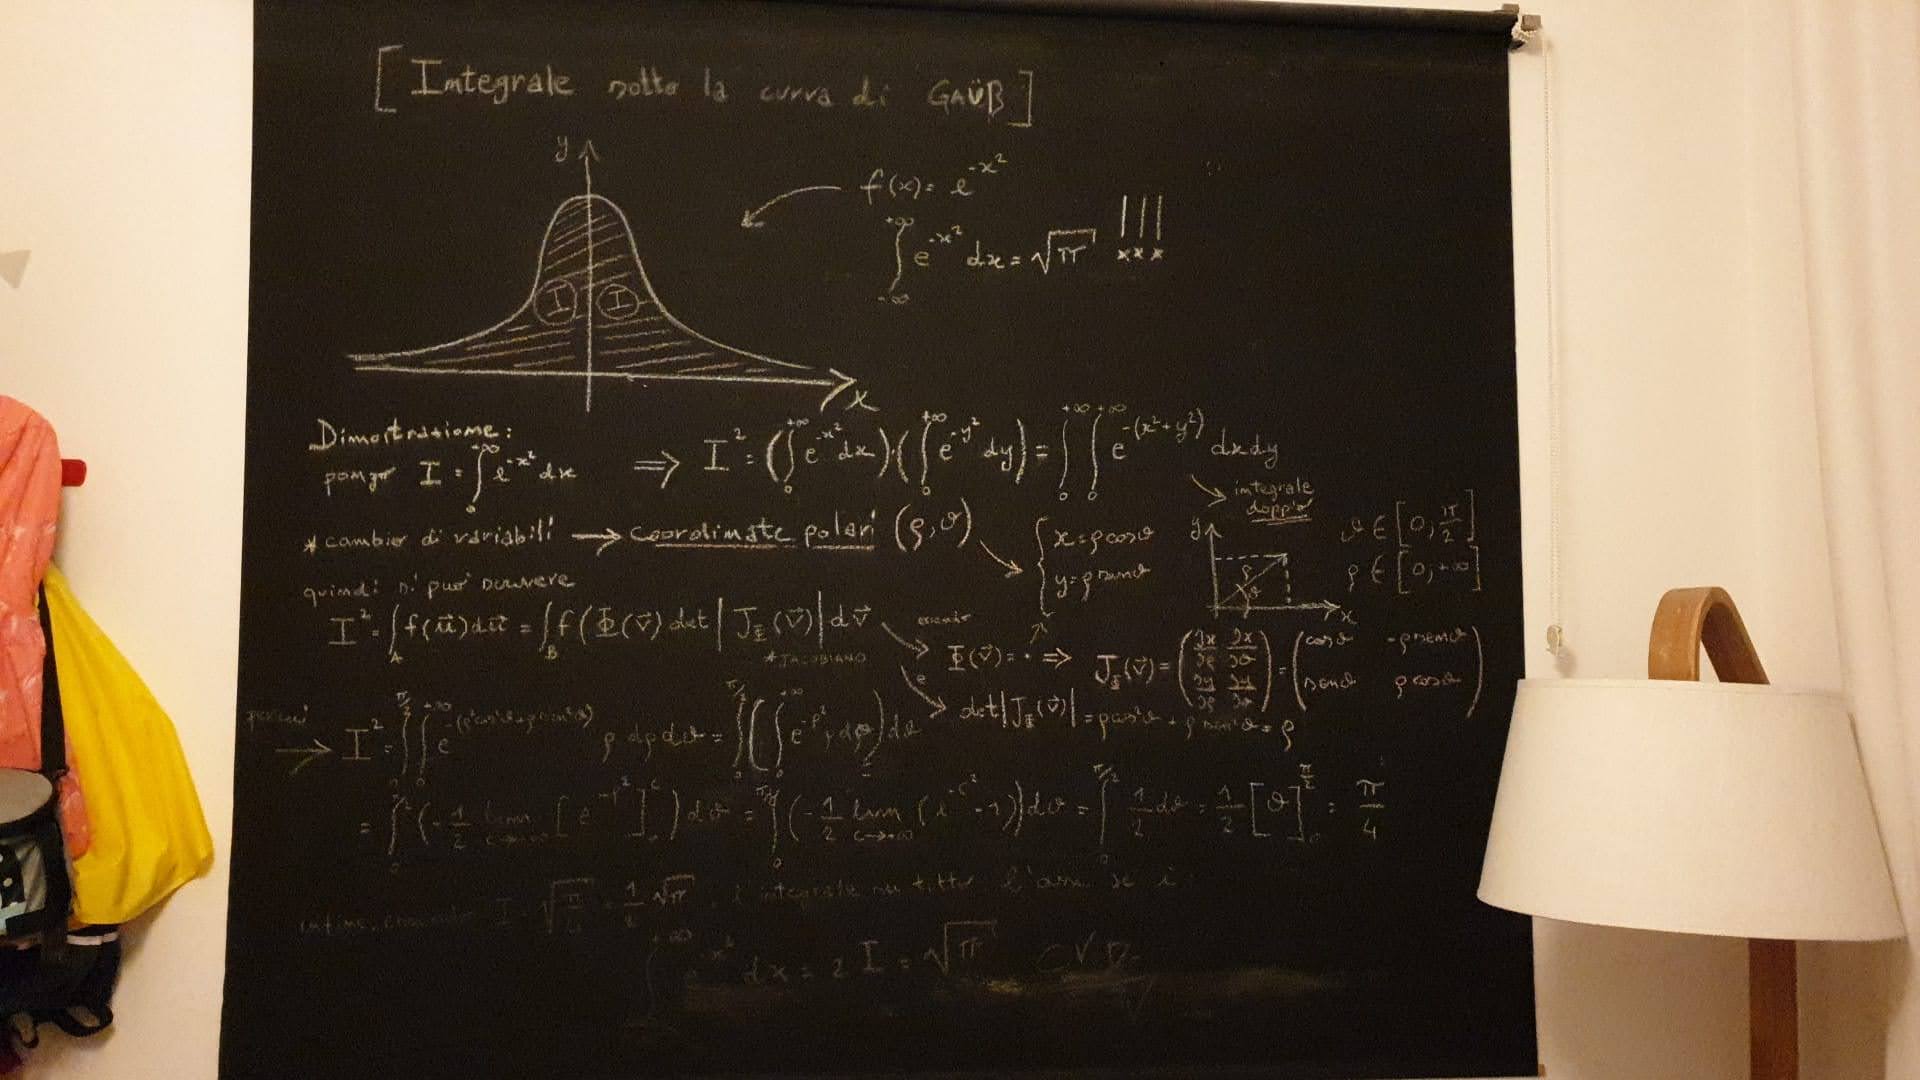 [Integrale sotto la curva di GAÜß]
y
f(x) = e^{-x²}
∫_{-∞}^{+∞} e^{-x²} dx = √π !!!
I I
x
Dimostrazione:
pongo I = ∫_0^{+∞} e^{-x²} dx ⇒ I² = (∫_0^{+∞} e^{-x²} dx)·(∫_0^{+∞} e^{-y²} dy) = ∫_0^{+∞} ∫_0^{+∞} e^{-(x²+y²)} dx dy
→ integrale doppio
* cambio di variabili → coordinate polari (ρ,ϑ) → { x = ρ cosϑ
y = ρ senϑ
y ρ ϑ x
ϑ ∈ [0; π/2]
ρ ∈ [0; +∞]
quindi si può scrivere
I² = ∫_A f(u⃗) du⃗ = ∫_B f(Φ(v⃗) det |J_Φ(v⃗)| dv⃗
* JACOBIANO
essendo → Φ(v⃗) = · ⇒ J_Φ(v⃗) = (∂x/∂ρ ∂x/∂ϑ ∂y/∂ρ ∂y/∂ϑ) = (cosϑ -ρ senϑ senϑ ρ cosϑ)
e → det |J_Φ(v⃗)| = ρ cos²ϑ + ρ sen²ϑ = ρ
perciò → I² = ∫_0^{π/2} ∫_0^{+∞} e^{-(ρ²cos²ϑ+ρ²sen²ϑ)} ρ dρ dϑ = ∫_0^{π/2} (∫_0^{+∞} e^{-ρ²} ρ dρ) dϑ
= ∫_0^{π/2} (-1/2 lim_{c→+∞} [e^{-ρ²}]_0^c) dϑ = ∫_0^{π/2} (-1/2 lim_{c→+∞} (e^{-c²} - 1)) dϑ = ∫_0^{π/2} 1/2 dϑ = 1/2 [ϑ]_0^{π/2} = π/4
infine, essendo I = √(π/4) = 1/2 √π, l'integrale su tutto l'asse
∫^{+∞} e^{-x²} dx = 2 I = √π CVD